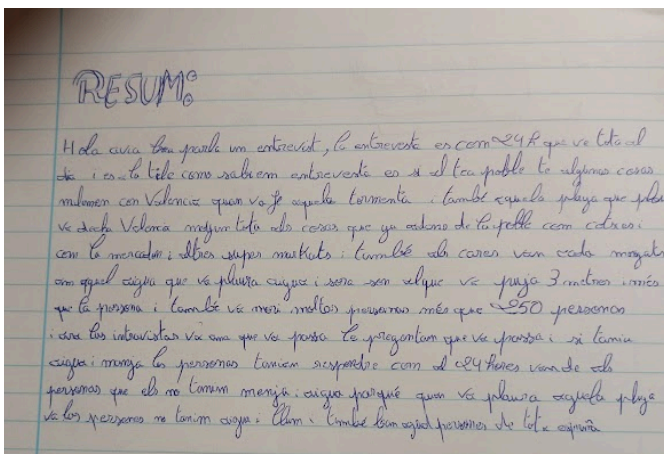 RESUM:
Hola avia fou parla un entrevist, la entrevesta es com 24h que ve tota al
dia i es la tele como sabiem entrevesta es si el teu poble te algunas cosas
mulomen con Valencia quan va fe aquela tormenta i també aquela pluya que plou
va Valencia tota als cosas que ya de la poble com cotxes i
com la mercadon i altres super markets i també als cases van cada mogats
am aquel aigua que va plaura augua i sera sen alque va puja 3 metres i més
que la persona i també va mori moltas personas més que 250 personas
i ara las intrevistas va ama que va passa la pregontam que va passa i si tania
aigua i manga las personas taniem respondre com al 24 hores van de als
personas que als no tanim menja i aigua parqué quan va plaura aquela pluya
va los personas no tanim aigua i llum i també personas de tota españa